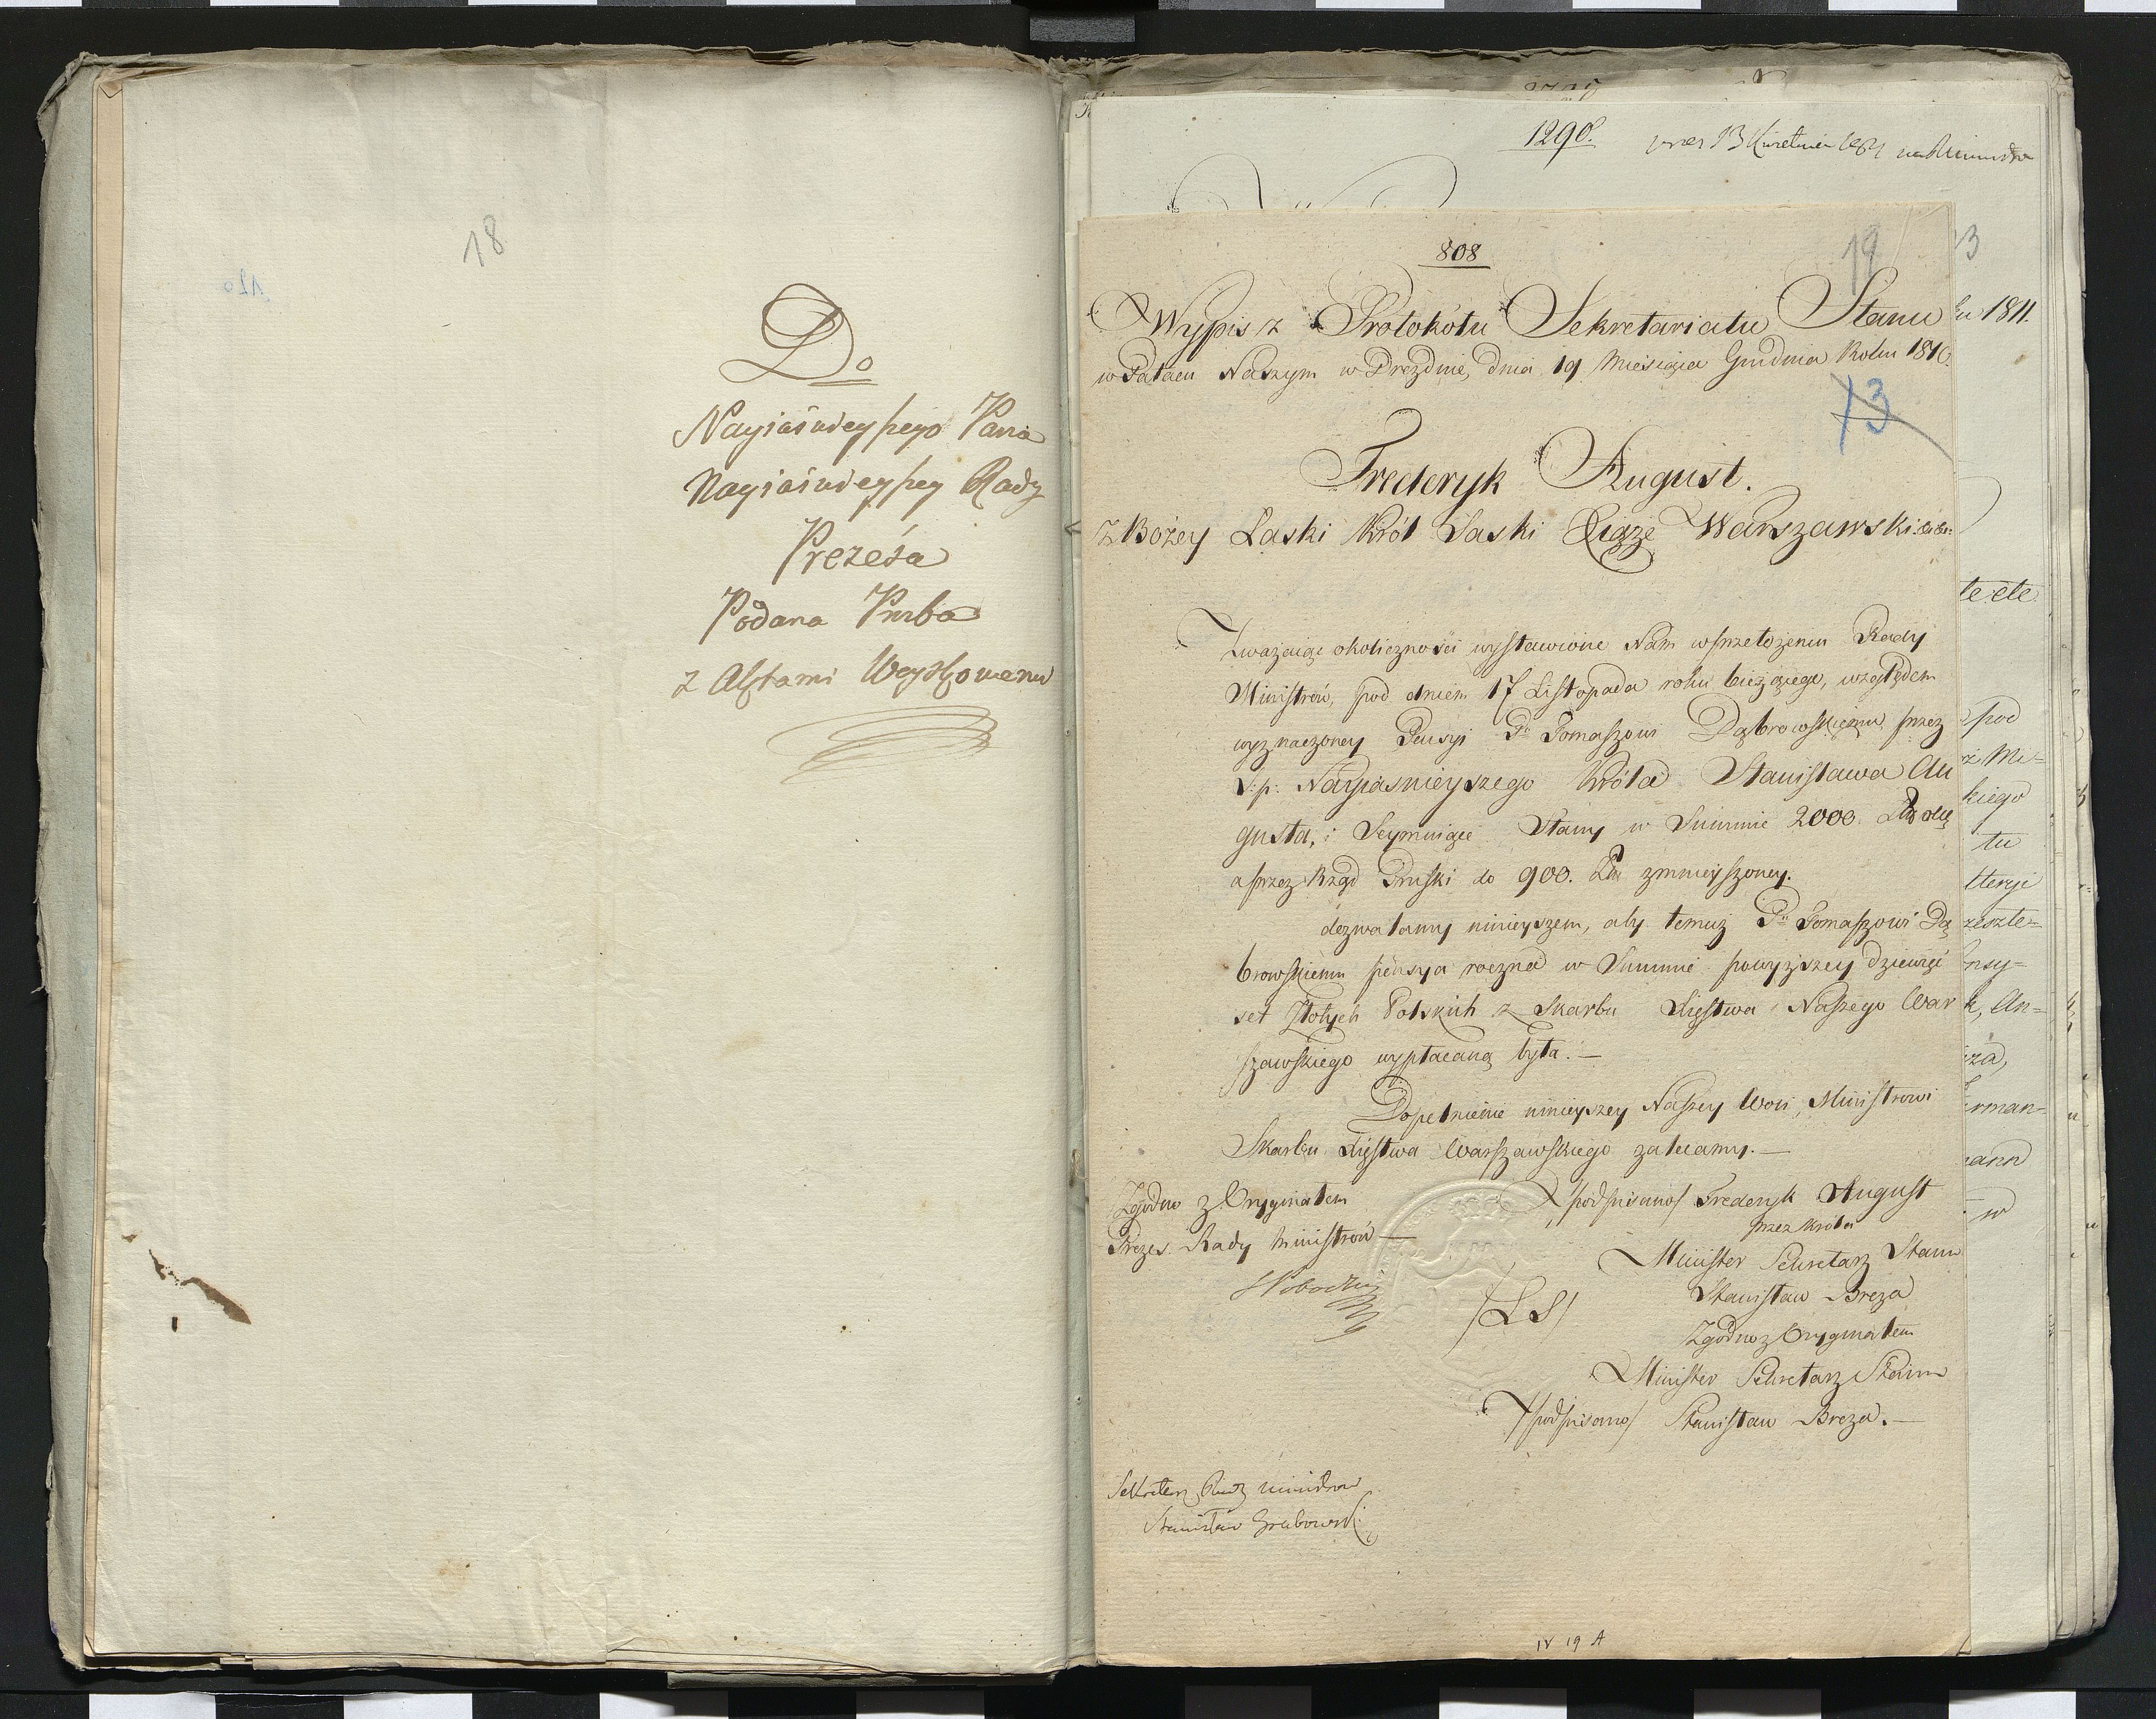 18
Do
Nayiaśnieyszego Pana
Nayiaśnieyszey Rady
Prezesa
Podana Proźba
z Alztami
1290.
19
808
Wypis z Protokołu Sekretariatu Stanu
w Pałacu Naszym w Dreznie, dnia 19 Miesiąca Grudnia Roku 1810
13
Frederyk August.
z Bożey Łaski Król Saski Xiąże Warszawski &c &c
Zważaiąc okoliczności wystawione Nam w przełożeniu Rady
Ministrów, pod dniem 17 Listopada roku bieżącego, względem
wyznaczoney Pensyi Pu Tomaszowi Dąbrowskiemu przez
ś: p: Nayiaśnieyszego Króla Stanisława Au
gusta, i Seymuiące Stany w Summie 2000.
a przez Rząd Pruski do 900. Zł zmnieyszoney.
dozwalamy ninieyszem, aby temuż Pu Tomaszowi Dą
browskiemu pensya roczna w Summie powyższey dziewięć
set Złotych Polskich z Skarbu Xięstwa Naszego War
szawskiego wypłacaną była. —
Dopełnienie ninieyszey Naszey Woli, Ministrowi
Skarbu Xięstwa Warszawskiego zalecamy. —
Zgodno z Oryginałem
Prezes Rady Ministrów —
/podpisano/ Frederyk August
przez Króla
Minister Sekretarz Stanu
Stanisław Breza
/LS/
Zgodno z Oryginałem
Minister Sekretarz Stanu
/podpisano/ Stanisław Breza. —
Sekretarz Rady Ministrów
Stanisław Grabowski
18 19 A
1811.
te etc
pod
kiego
tu